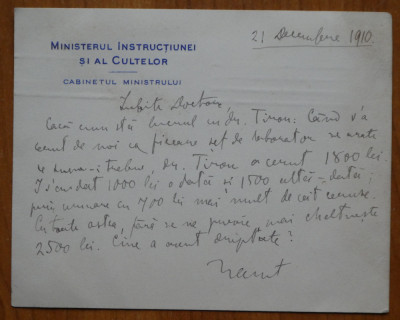 21 Decembre 1910.
MINISTERUL INSTRUCȚIUNEI
ȘI AL CULTELOR
CABINETUL MINISTRULUI
Iubite Doctore,
Iacă cum stă lucrul cu dr. Tiron: Când s'a
cerut de noi ca fiecare șef de laborator să arate
ce suma-i trebue, dr. Tiron a cerut 1800 lei.
I s'au dat 1000 lei odată și 1500 altă-dată;
prin urmare cu 700 lei mai mult de cât ceruse.
Cu toate astea, fără să ne previe, mai cheltuește
2500 lei. Cine a avut dreptate?
Haret